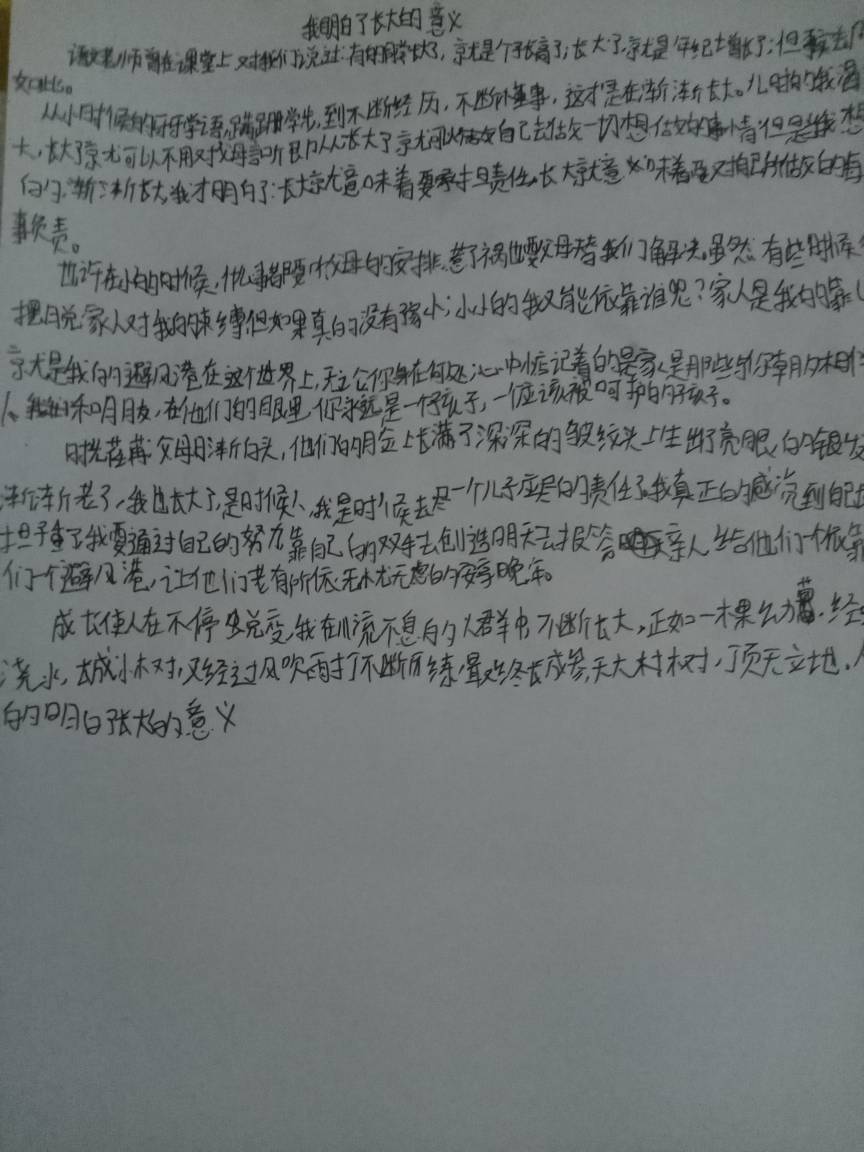 我明白了长大的意义
语文老师曾在课堂上对我们说过:有的时候长大了,就是个子长高了;长大了就是年纪增长了;但事实
如此。
从小时候的牙牙学语,蹒跚学步,到不断经历,不断懂事,这才是在渐渐长大。儿时的我渴
大,长大了就可以不用对父母言听计从,长大了就可以依自己去做一切想做的事情但是我想
白白,渐渐长大我才明白了:长大就意味着要承担责任,长大就意义味着要对自己所做的每
事负责。
也许在小的时候,什么事都要听父母的安排,惹了祸也要父母替我们解决。虽然有些时候
把自说家人对我的束缚但如果真的没有缘小;小小的我又能依靠谁呢?家人是我的靠山
就是我的避风港在这个世界上,无论你身在何处心中惦记着的是家人是那些与你朝夕相伴
人,和朋友,在他们的眼里,你永远是一个孩子,一个应该被呵护的孩子。
时光荏苒,父母日渐白头,他们的脸上长满了深深的皱纹头上生出了亮眼的银发
渐渐老了,我也长大了,是时候,我是时候去尽一个儿子应尽的责任了我真正的感觉到自己
担子重了我要通过自己的努力靠自己的双手去创造明天去报答亲人给他们一个依靠
们一个避风港,让他们老有所依无忧无虑的安享晚年。
成长使人在不停蜕变,我在川流不息的人群中不断长大,正如一棵幼苗,经
浇水,长成小树,又经过风吹雨打不断历练,最终长成参天大树,顶天立地。
的明白张大的意义